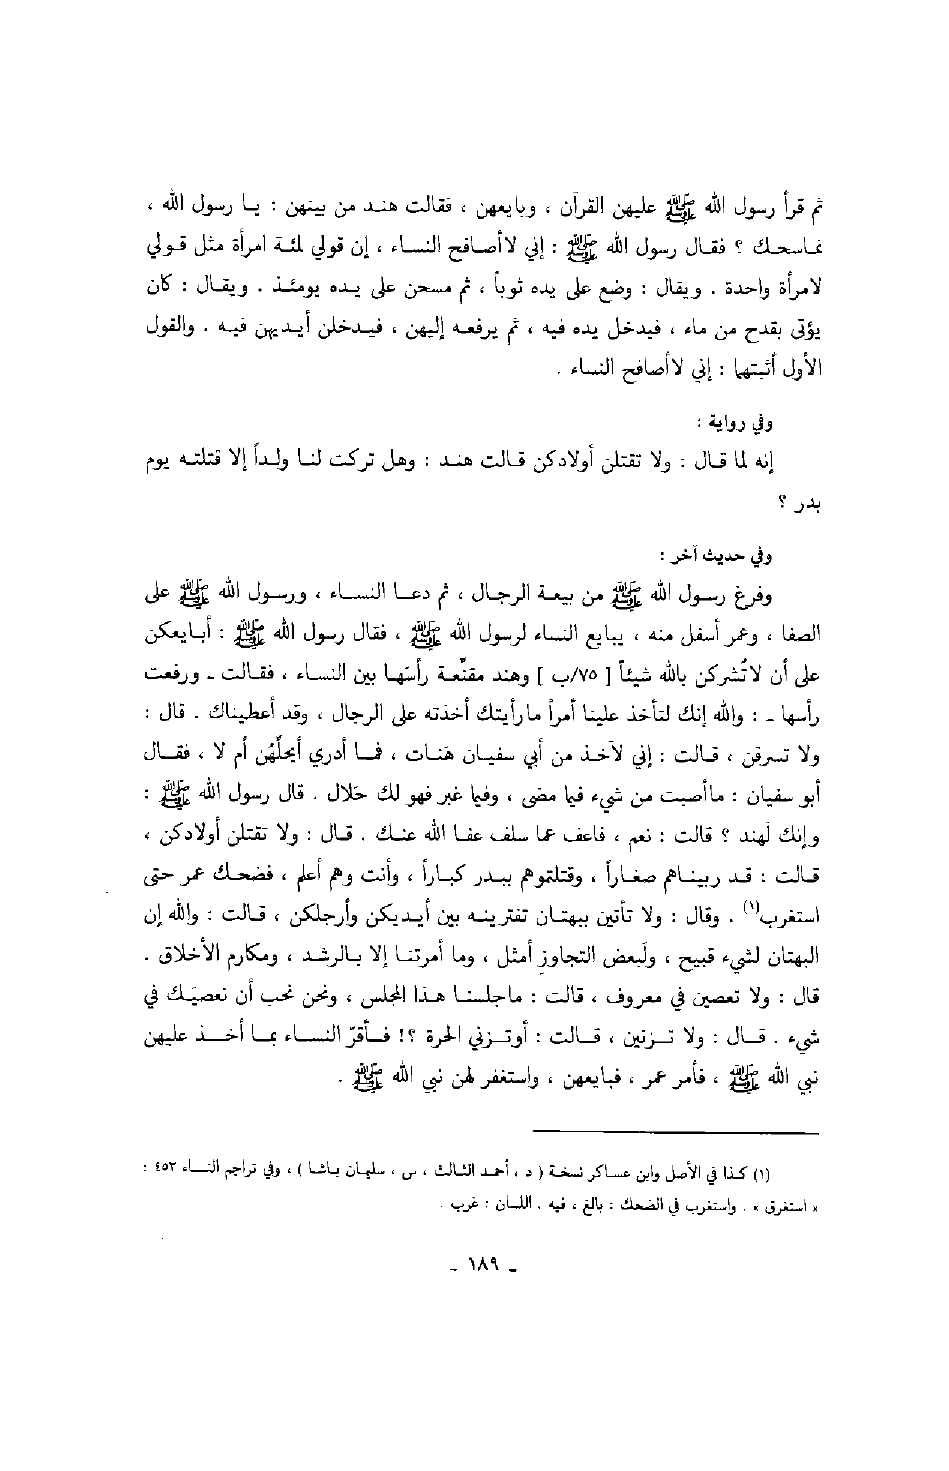 ثم قرأ رسول الله ﷺ عليهن القرآن ، وبايعهن ، فقالت هند من بينهن : يا رسول الله ،
نماسحك ؟ فقال رسول الله ﷺ : إني لا أصافح النساء ، إن قولي لمئة امرأة مثل قولي
لامرأة واحدة . ويقال : وضع على يده ثوباً ، ثم مسحن على يده يومئذ . ويقال : كان
يؤتى بقدح من ماء ، فيدخل يده فيه ، ثم يرفعه إليهن ، فيدخلن أيديهن فيه . والقول
الأول أثبتها : إني لا أصافح النساء .
وفي رواية :
إنه لما قال : ولا تقتلن أولادكن قالت هند : وهل تركت لنا ولداً إلا قتلته يوم
بدر ؟
وفي حديث آخر :
وفرغ رسول الله ﷺ من بيعة الرجال ، ثم دعا النساء ، ورسول الله ﷺ على
الصفا ، وعمر أسفل منه ، يبايع النساء لرسول الله ﷺ ، فقال رسول الله ﷺ : أبايعكن
على أن لا تُشركن بالله شيئاً [ ٧٥/ب ] وهند مقنّعة رأسَها بين النساء ، فقالت - ورفعت
رأسها - : والله إنك لتأخذ علينا أمراً ما رأيتك أخذته على الرجال ، وقد أعطيناك . قال :
ولا تسرقن ، قالت : إني لآخذ من أبي سفيان هَنات ، فما أدري أيحلّهُن أم لا ، فقال
أبو سفيان : ما أصبت من شيء فيما مضى ، وفيما غبر فهو لك حَلال . قال رسول الله ﷺ :
وإنك لَهند ؟ قالت : نعم ، فاعف عما سلف عفا الله عنك . قال : ولا تقتلن أولادكن ،
قالت : قد ربيناهم صغاراً ، وقتلتموهم ببدر كباراً ، وأنت وهم أعلم ، فضحك عمر حتى
استغرب(١) . وقال : ولا تأتين ببهتان تفترينه بين أيديكن وأرجلكن ، قالت : والله إن
البهتان لشيء قبيح ، ولَبعض التجاوزِ أمثل ، وما أمرتنا إلا بالرشد ، ومكارم الأخلاق .
قال : ولا تعصين في معروف ، قالت : ما جلسنا هذا المجلس ، ونحن نحب أن نعصيَك في
شيء . قال : ولا تزنين ، قالت : أوتزني الحرة ؟! فأقرّ النساء بما أخذ عليهن
نبي الله ﷺ ، فأمر عمر ، فبايعهن ، واستغفر لهن نبي الله ﷺ .
(١) كذا في الأصل وابن عساكر نسخة ( د ، أحمد الثالث ، س ، سليمان باشا ) ، وفي تراجم النساء ٤٥٣ :
« استغرق » . واستغرب في الضحك : بالغ ، فيه . اللسان : غرب .
- ١٨٩ -